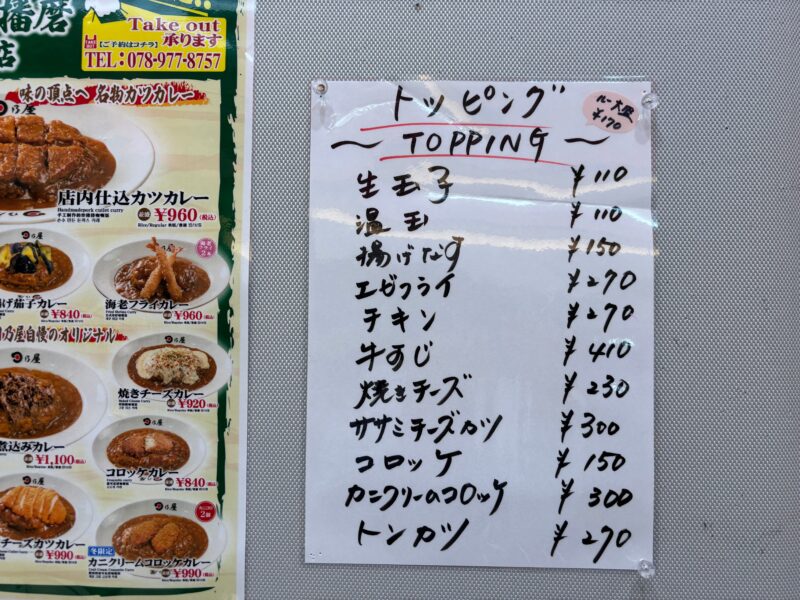 播磨
店
Take out
承ります
【ご予約はコチラ】
TEL：078-977-8757
味の頂点へ 名物カツカレー
店内仕込カツカレー
Handmade pork cutlet curry
¥960(税込)
海老フライカレー
¥960(税込)
げ茄子カレー
¥840(税込)
乃屋自慢のオリジナル
焼きチーズカレー
¥920(税込)
煮込みカレー
¥1,100(税込)
コロッケカレー
¥840(税込)
チーズカツカレー
¥990(税込)
冬限定
カニクリームコロッケカレー
¥990(税込)
トッピング
～TOPPING～
ルー大盛
¥170
生玉子 ¥110
温玉 ¥110
揚げなす ¥150
エビフライ ¥270
チキン ¥270
牛すじ ¥410
焼きチーズ ¥230
ササミチーズカツ ¥300
コロッケ ¥150
カニクリームコロッケ ¥300
トンカツ ¥270